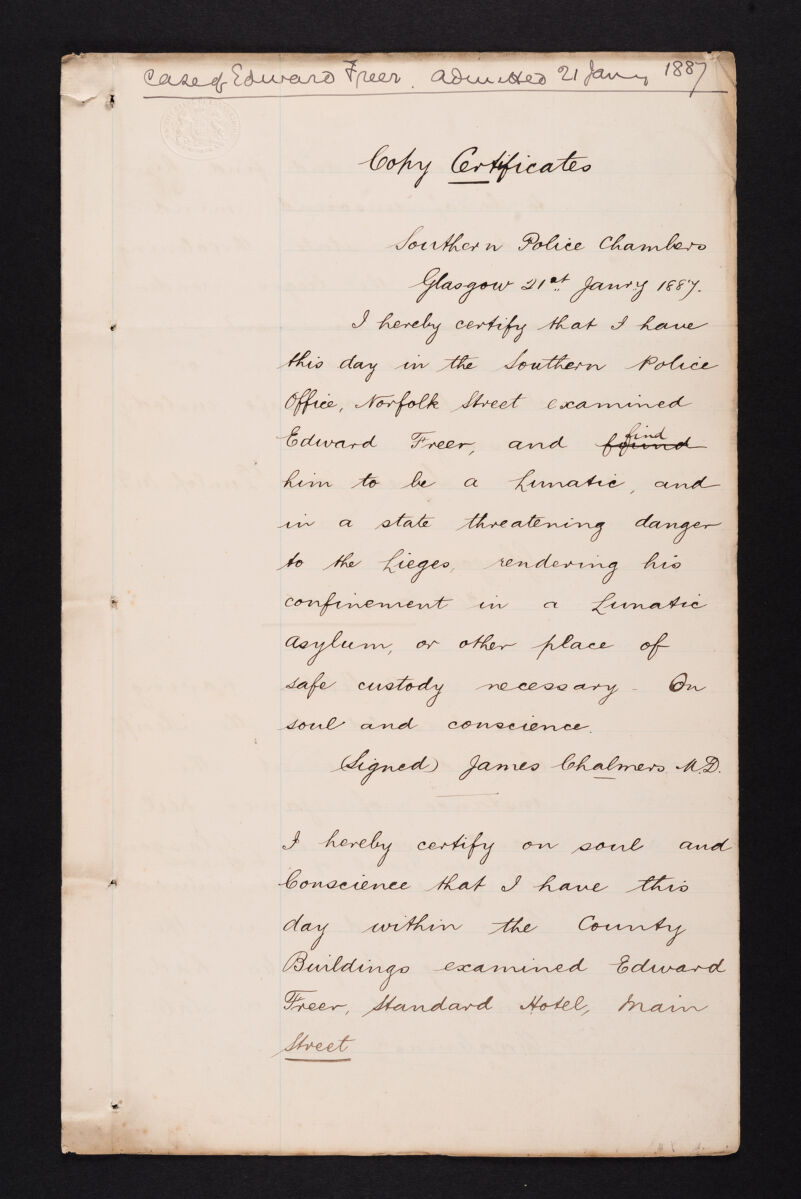 Case of Edward Freer. Admitted 21 Jany 1887
Copy Certificates
Southern Police Chambers
Glasgow 21st Janry 1887.
I hereby certify that I have
this day in the Southern Police
Office, Norfolk Street examined
Edward Freer, and found find
him to be a Lunatic, and
in a state threatening danger
to the Lieges, rendering his
confinement in a Lunatic
Asylum, or other place of
safe custody necessary - On
soul and conscience.
(Signed) James Chalmers M.D.
I hereby certify on soul and
Conscience that I have this
day within the County
Buildings examined Edward
Freer, Standard Hotel, Main
Street